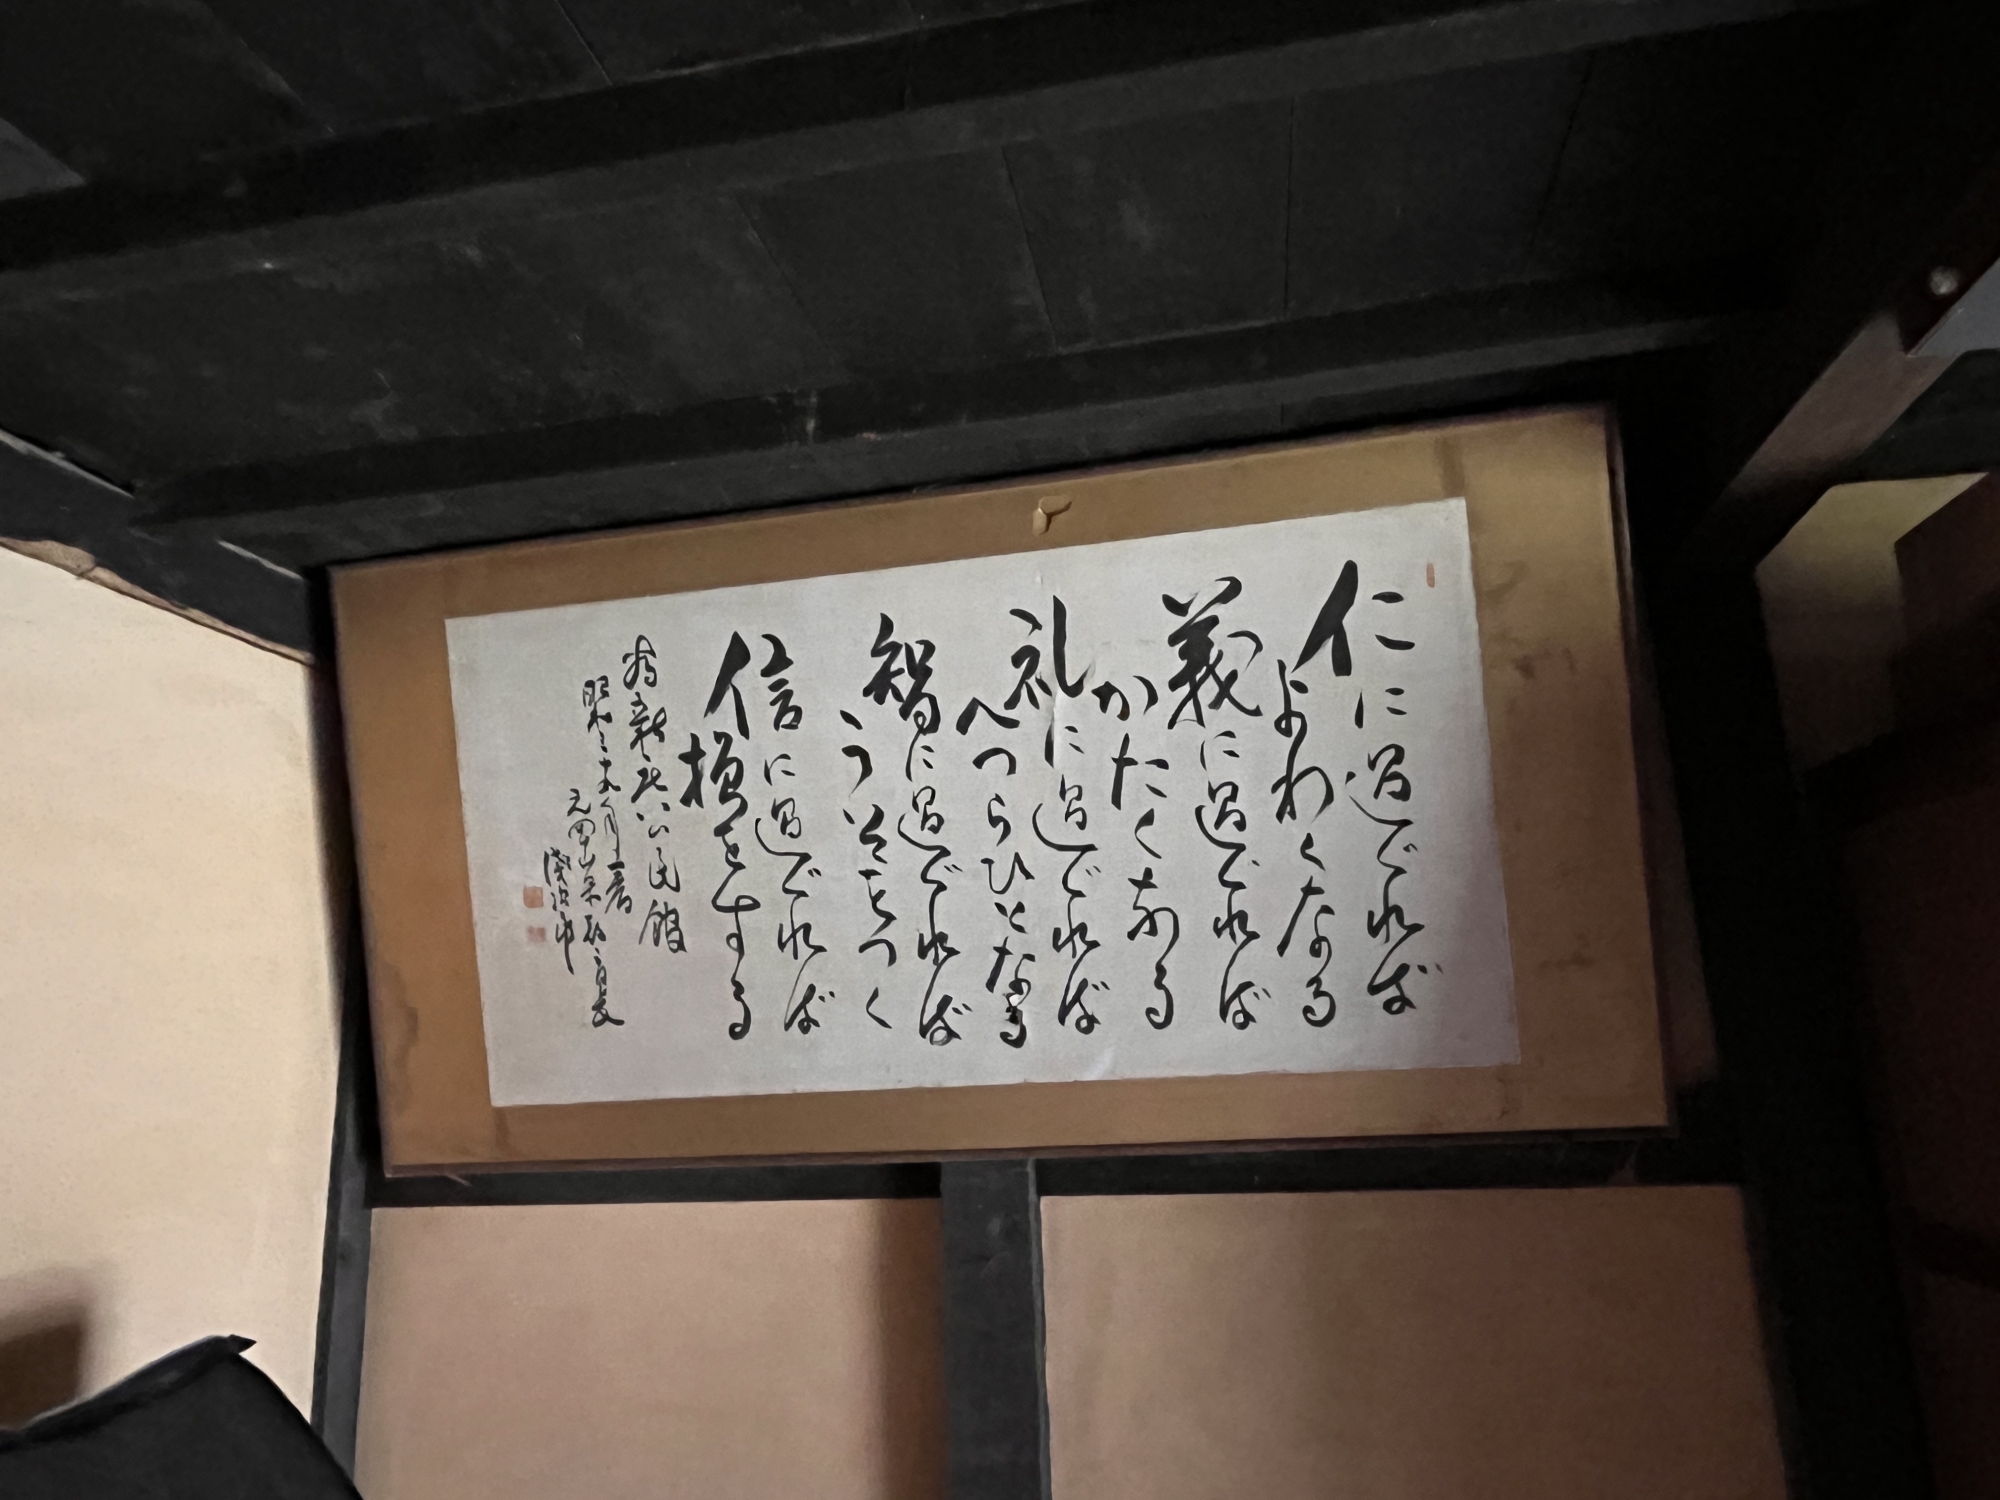 仁に過ぐれば
よわくなる
義に過ぐれば
かたくなる
礼に過ぐれば
へつらひとなる
智に過ぐれば
うそをつく
信に過ぐれば
損をする
公民館
昭和
元